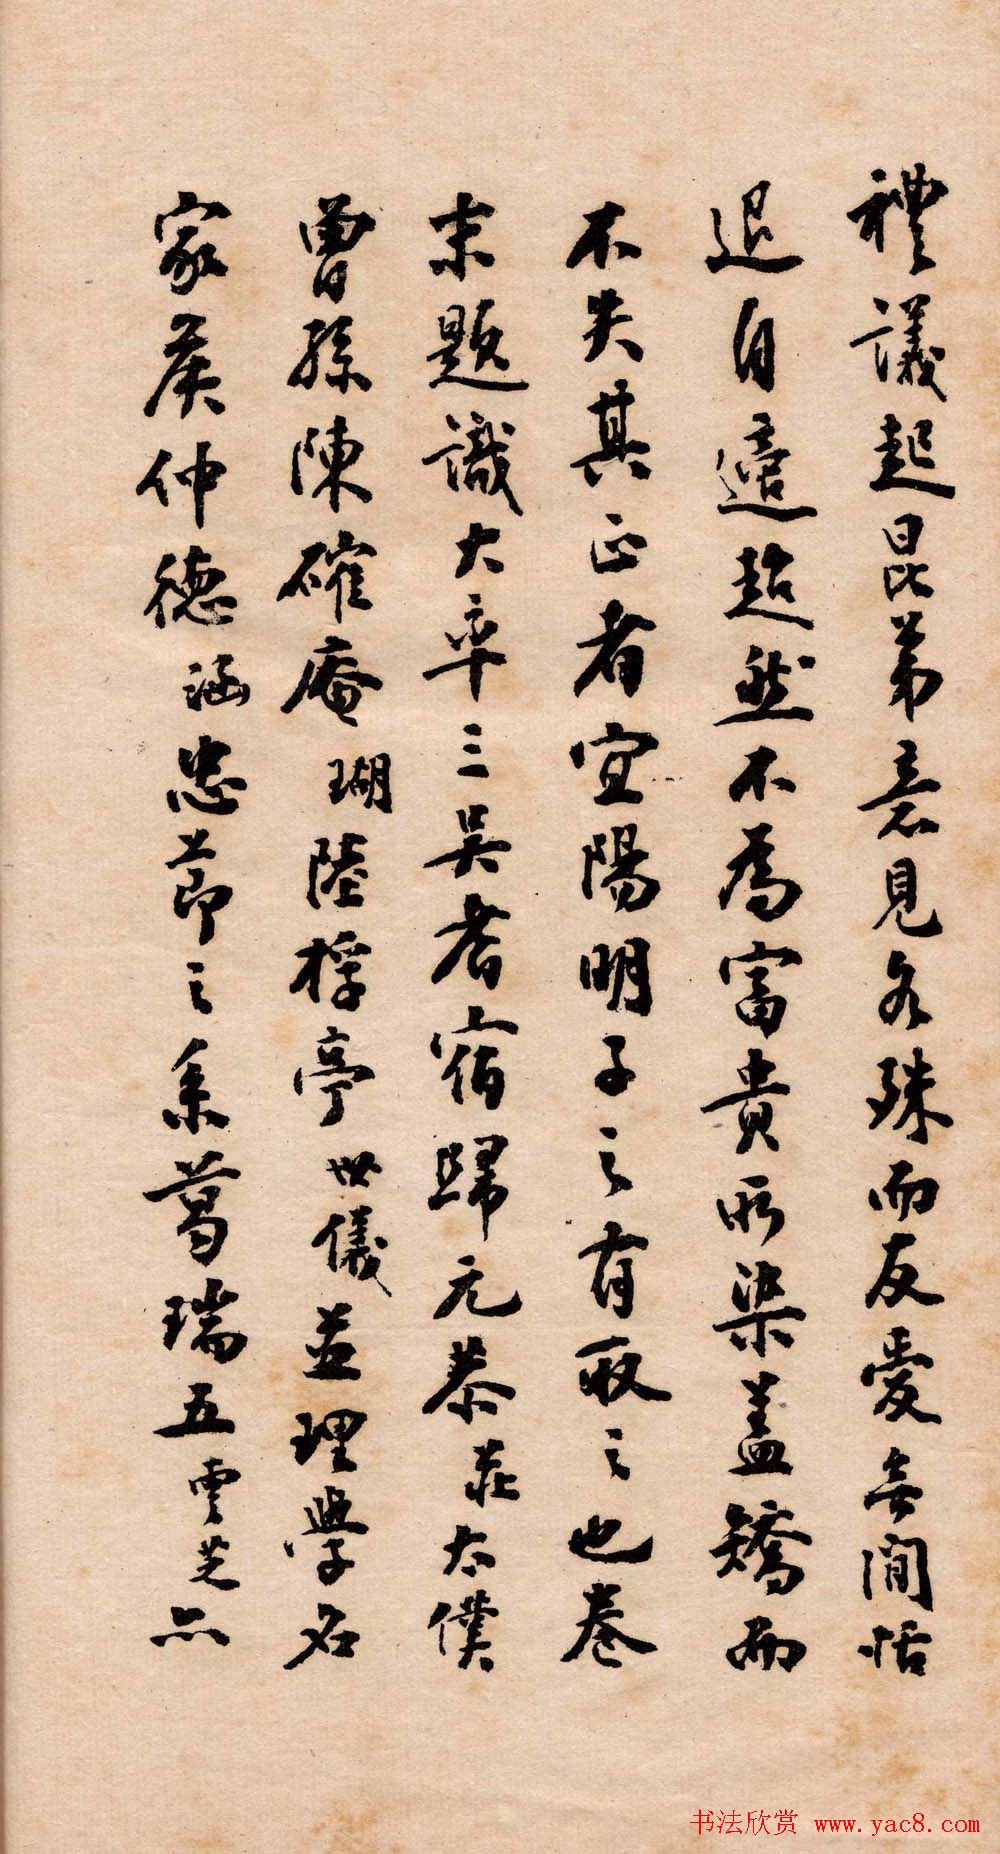 禮議起昆弟意見各殊而友愛無間恬
退自適超然不爲富貴所染蓋矯而
不失其正者宜陽明子之有取之也卷
末題識大率三吳耆宿歸元恭莊太僕
曾孫陳確庵瑚陸桴亭世儀並理學名
家侯仲德涵忠節之系葛瑞五雲芝亦
书法欣赏 www.yac8.com